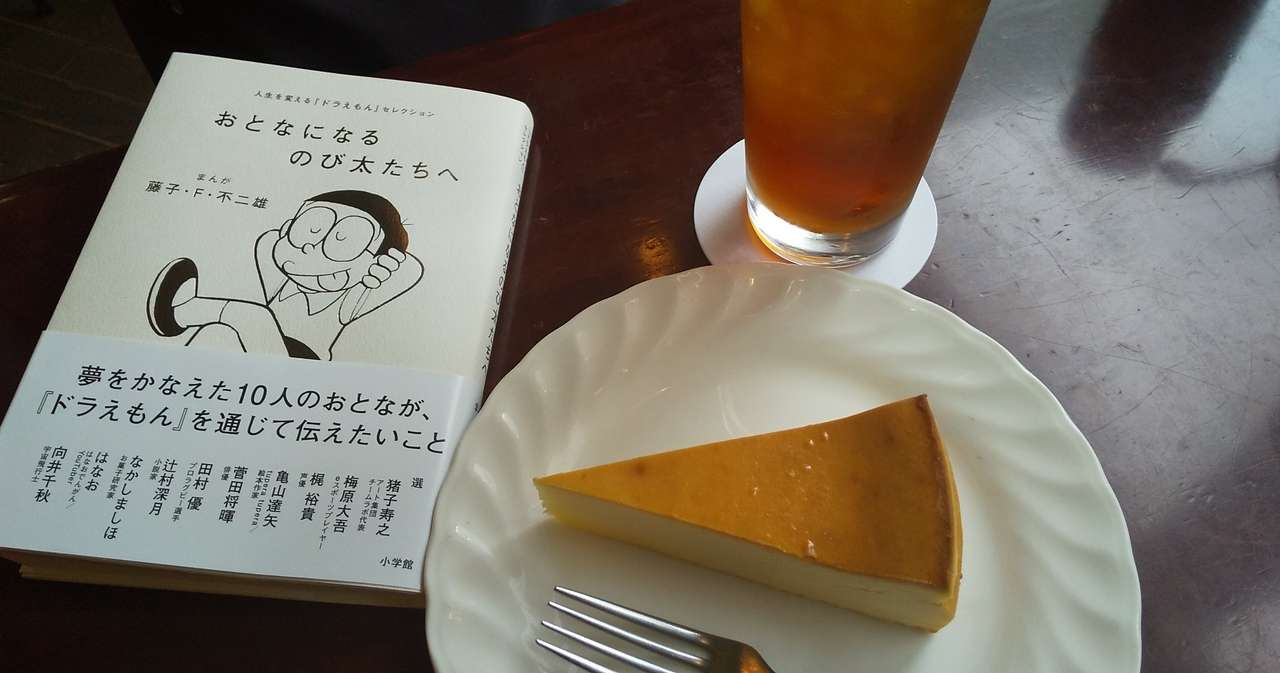 人生を変える「ドラえもん」セレクション
おとなになる
のび太たちへ
まんが
藤子・F・不二雄
夢をかなえた10人のおとなが、
『ドラえもん』を通じて伝えたいこと
選
猪子寿之
アート集団
チームラボ代表
梅原大吾
eスポーツプレイヤー
梶 裕貴
声優
亀山達矢
tupera tupera/
絵本作家
菅田将暉
俳優
田村 優
プロラグビー選手
辻村深月
小説家
なかしましほ
お菓子研究家
はなお
はなおでんがん/
YouTuber
向井千秋
宇宙飛行士
小学館